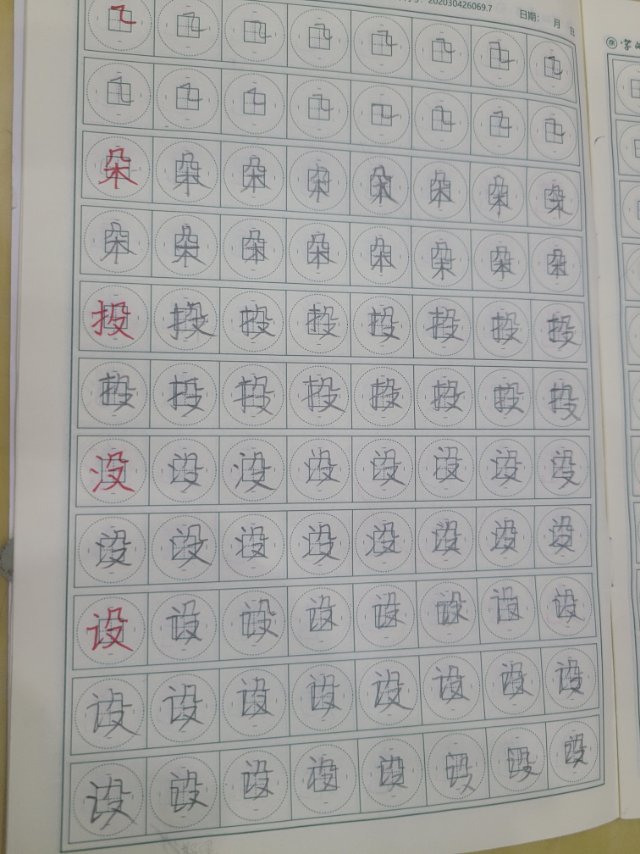 202030426069.7 日期： 月 日
朵朵朵朵朵朵朵朵
朵朵朵朵朵朵朵朵
投投投投投投投投
投投投投投投投投
没没没没没没没没
没没没没没没没没
设设设设设设设设
设设设设设设设设
设设设设设设设设